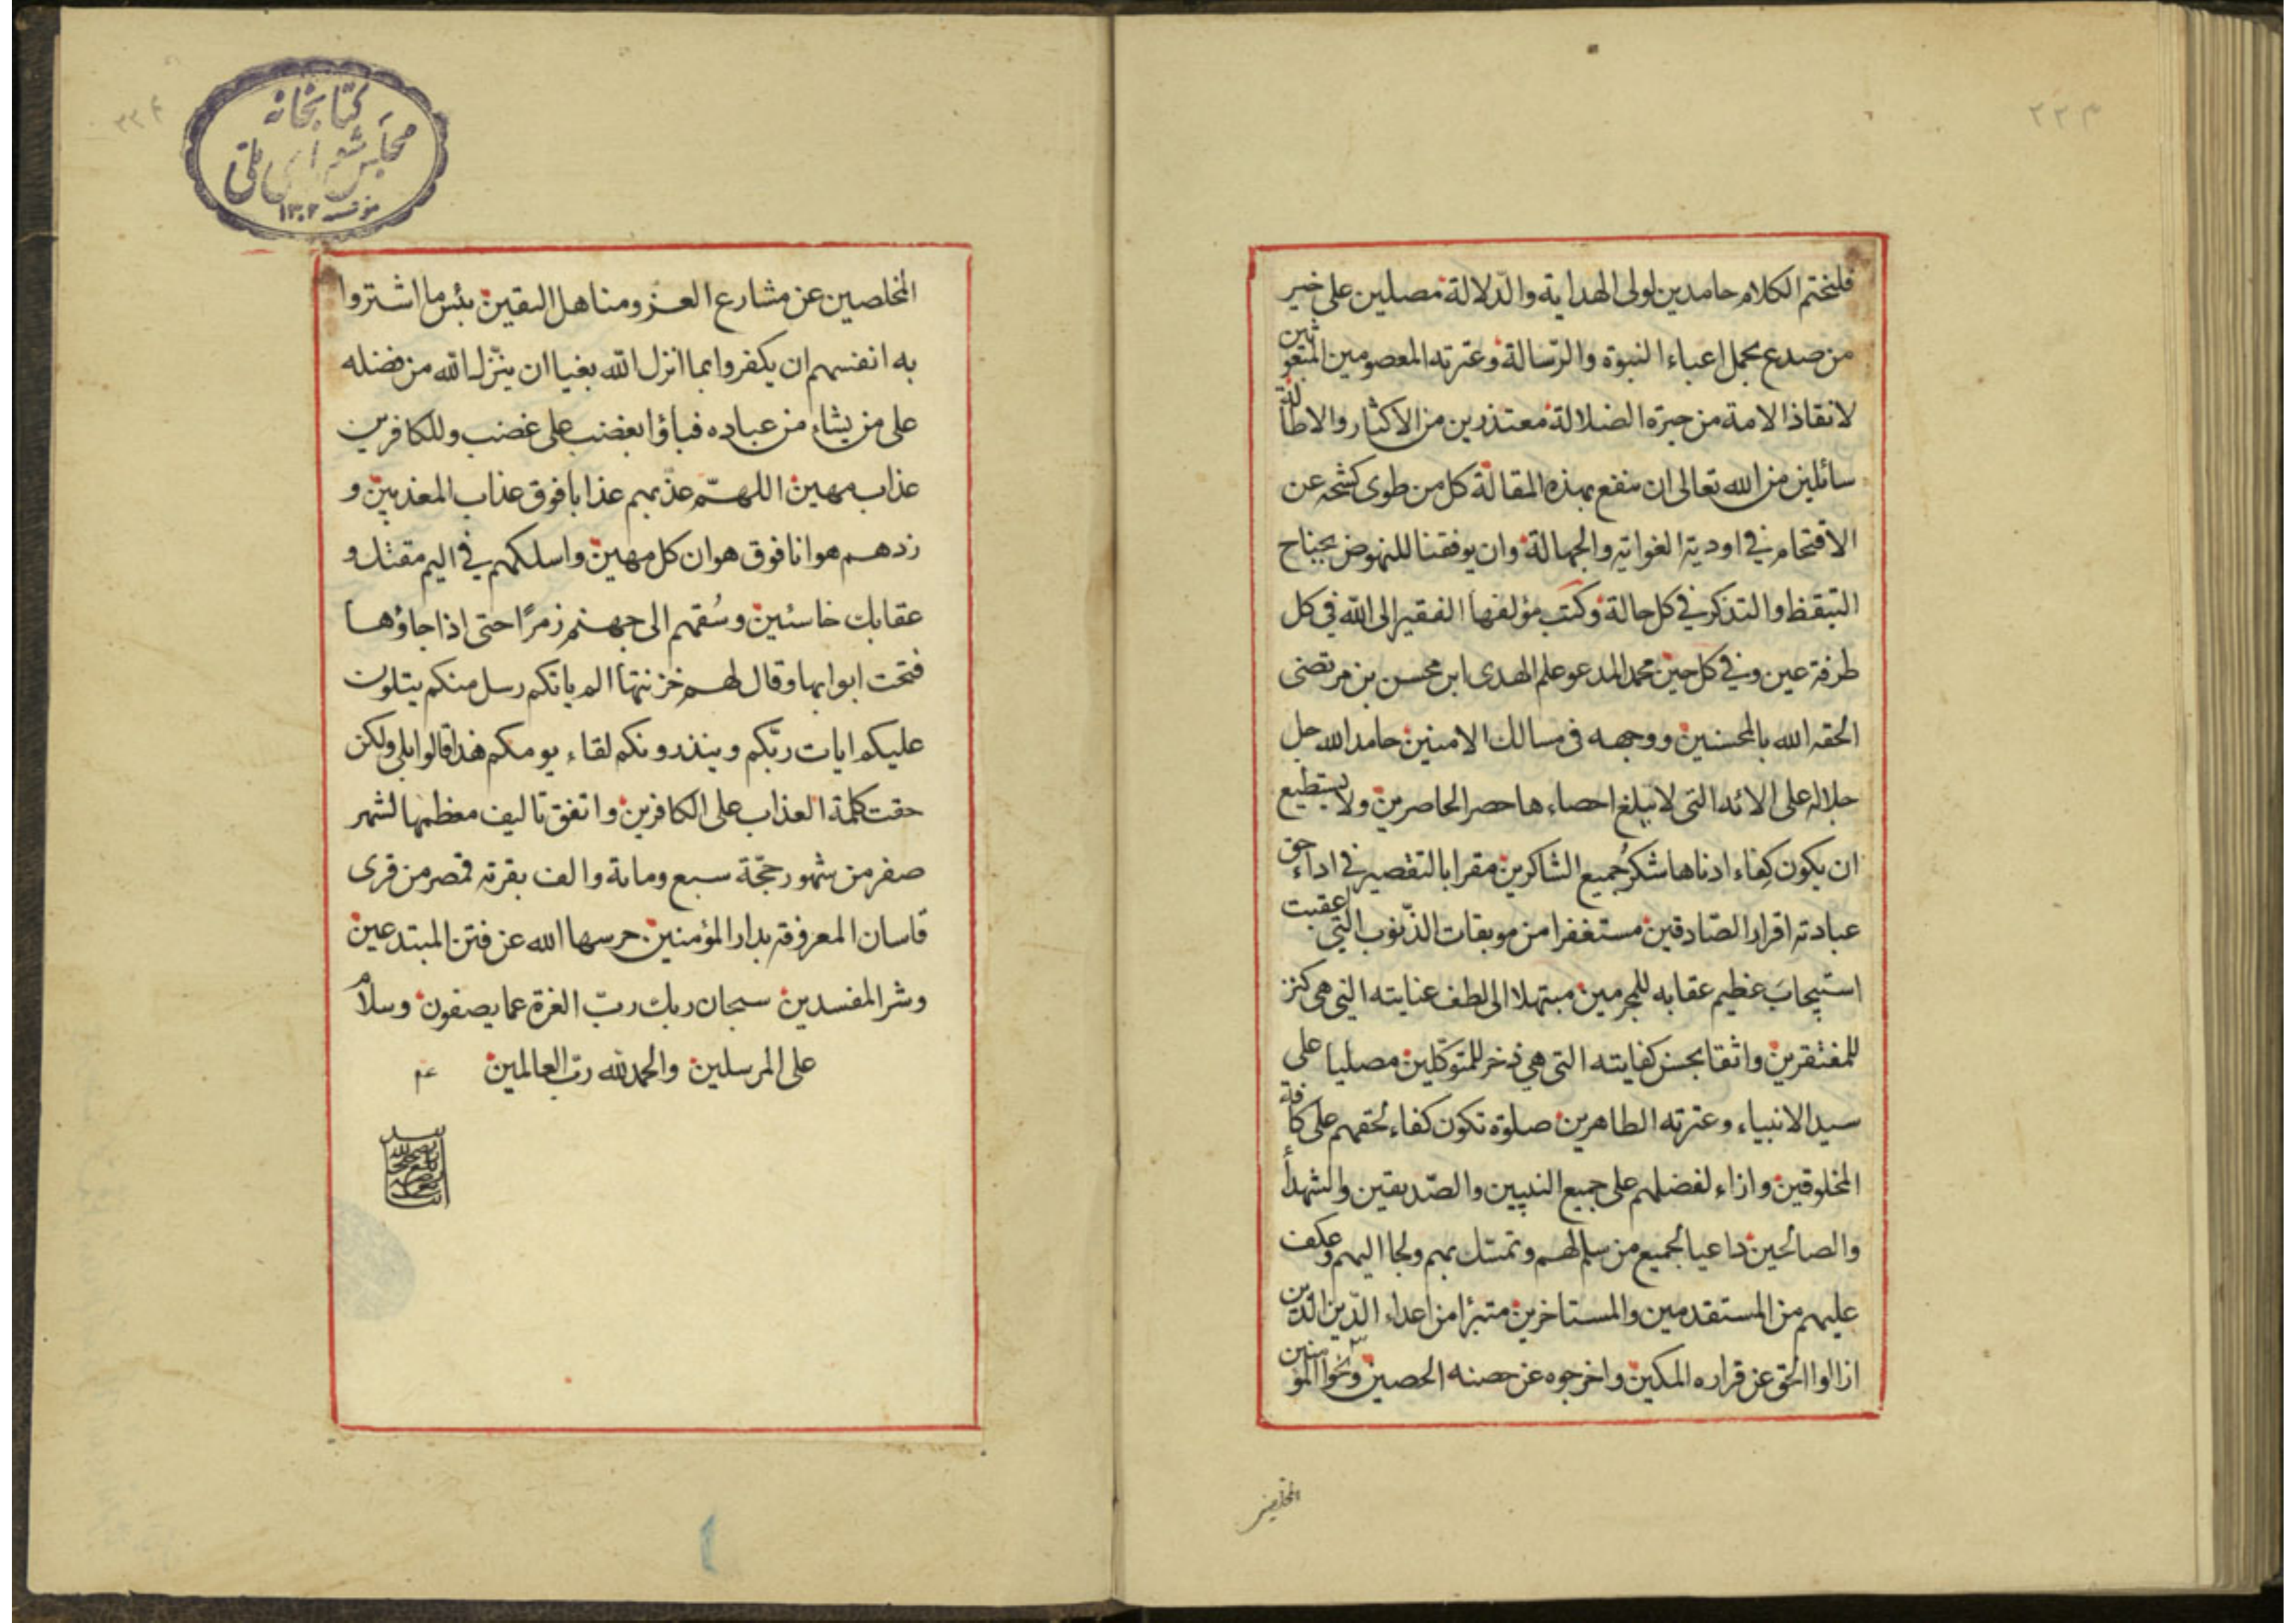 ٢٢٣
فلنختم الكلام حامدين لولى الهداية والدّلالة مصلين على خير
من صدع بحمل اعباء النبوة والرّسالة وعترته المعصومين المنعوثين
لانقاذ الامة من حيرة الضلالة معتذرين من الاكثار والاطالة
سائلين من الله تعالى ان ينفع بهذه المقالة كل من طوى كشحه عن
الاقتحام في اودية الغواية والجهالة وان يوفقنا للنهوض بجناح
التيقظ والتذكر في كل حالة وكتب مؤلفها الفقير الى الله في كل
طرفة عين وفي كل حين محمد المدعو علم الهدى ابن محسن بن مرتضى
الحقه الله بالمحسنين ووجهه فى مسالك الامنين حامدا لله جل
جلاله على الائه التى لا يبلغ احصاءها حصر الحاصرين ولا يستطيع
ان يكون كِفاء ادناها شكرُ جميع الشاكرين مقرا بالتقصير في اداء حق
عبادته اقرار الصّادقين مستغفرا من موبقات الذّنوب التي اعقبت
استيجابَ عظيم عقابه للمجرمين مبتهلا الى لطف عنايته التي هى كنز
للمفتقرين واثقا بحسن كفايته التى هي ذخر للمتوكّلين مصليا على
سيد الانبياء وعترته الطاهرين صلوة تكون كفاء لحقهم على كافة
المخلوقين وازاء لفضلهم على جميع النبيين والصّديقين والشهدأ
والصالحين داعيا لجميع من سلم لهم وتمسك بهم ولجا اليهم وعكف
عليهم من المستقدمين والمستاخرين متبرّا من اعداء الدّين الّذين
ازالوا الحق عن قراره المكين واخرجوه عن حصنه الحصين ونحّوا المؤمنين
المخلصين
٢٢٤
كتابخانه
مجلس شورای ملّی
مؤسسه ١٣٠٢
المخلصين عن مشارع العز ومناهل اليقين بئس ما اشتروا
به انفسهم ان يكفروا بما انزل الله بغيا ان ينّزل الله من فضله
على من يشاء من عباده فباؤا بغضب على غضب وللكافرين
عذاب مهين اللهمّ عذّبهم عذابا فوق عذاب المعذبين و
زدهم هوانا فوق هوان كل مهين واسلكهم في اليم مقتك و
عقابك خاسئين وسُقهم الى جهنم زمرًا حتى اذا جاؤها
فتحت ابوابها وقال لهم خزنتها الم ياتكم رسل منكم يتلون
عليكم ايات ربّكم وينذرونكم لقاء يومكم هذا قالوا بلى ولكن
حقت كلمة العذاب على الكافرين واتفق تاليف معظمها لشهر
صفر من شهور حجّة سبع ومائة والف بقرية قمصر من قرى
قاسان المعروفة بدار المؤمنين حرسها الله عن فتن المبتدعين
وشر المفسدين سبحان ربك ربّ العزة عما يصفون وسلامٌ
على المرسلين والحمد لله ربّ العالمين عم